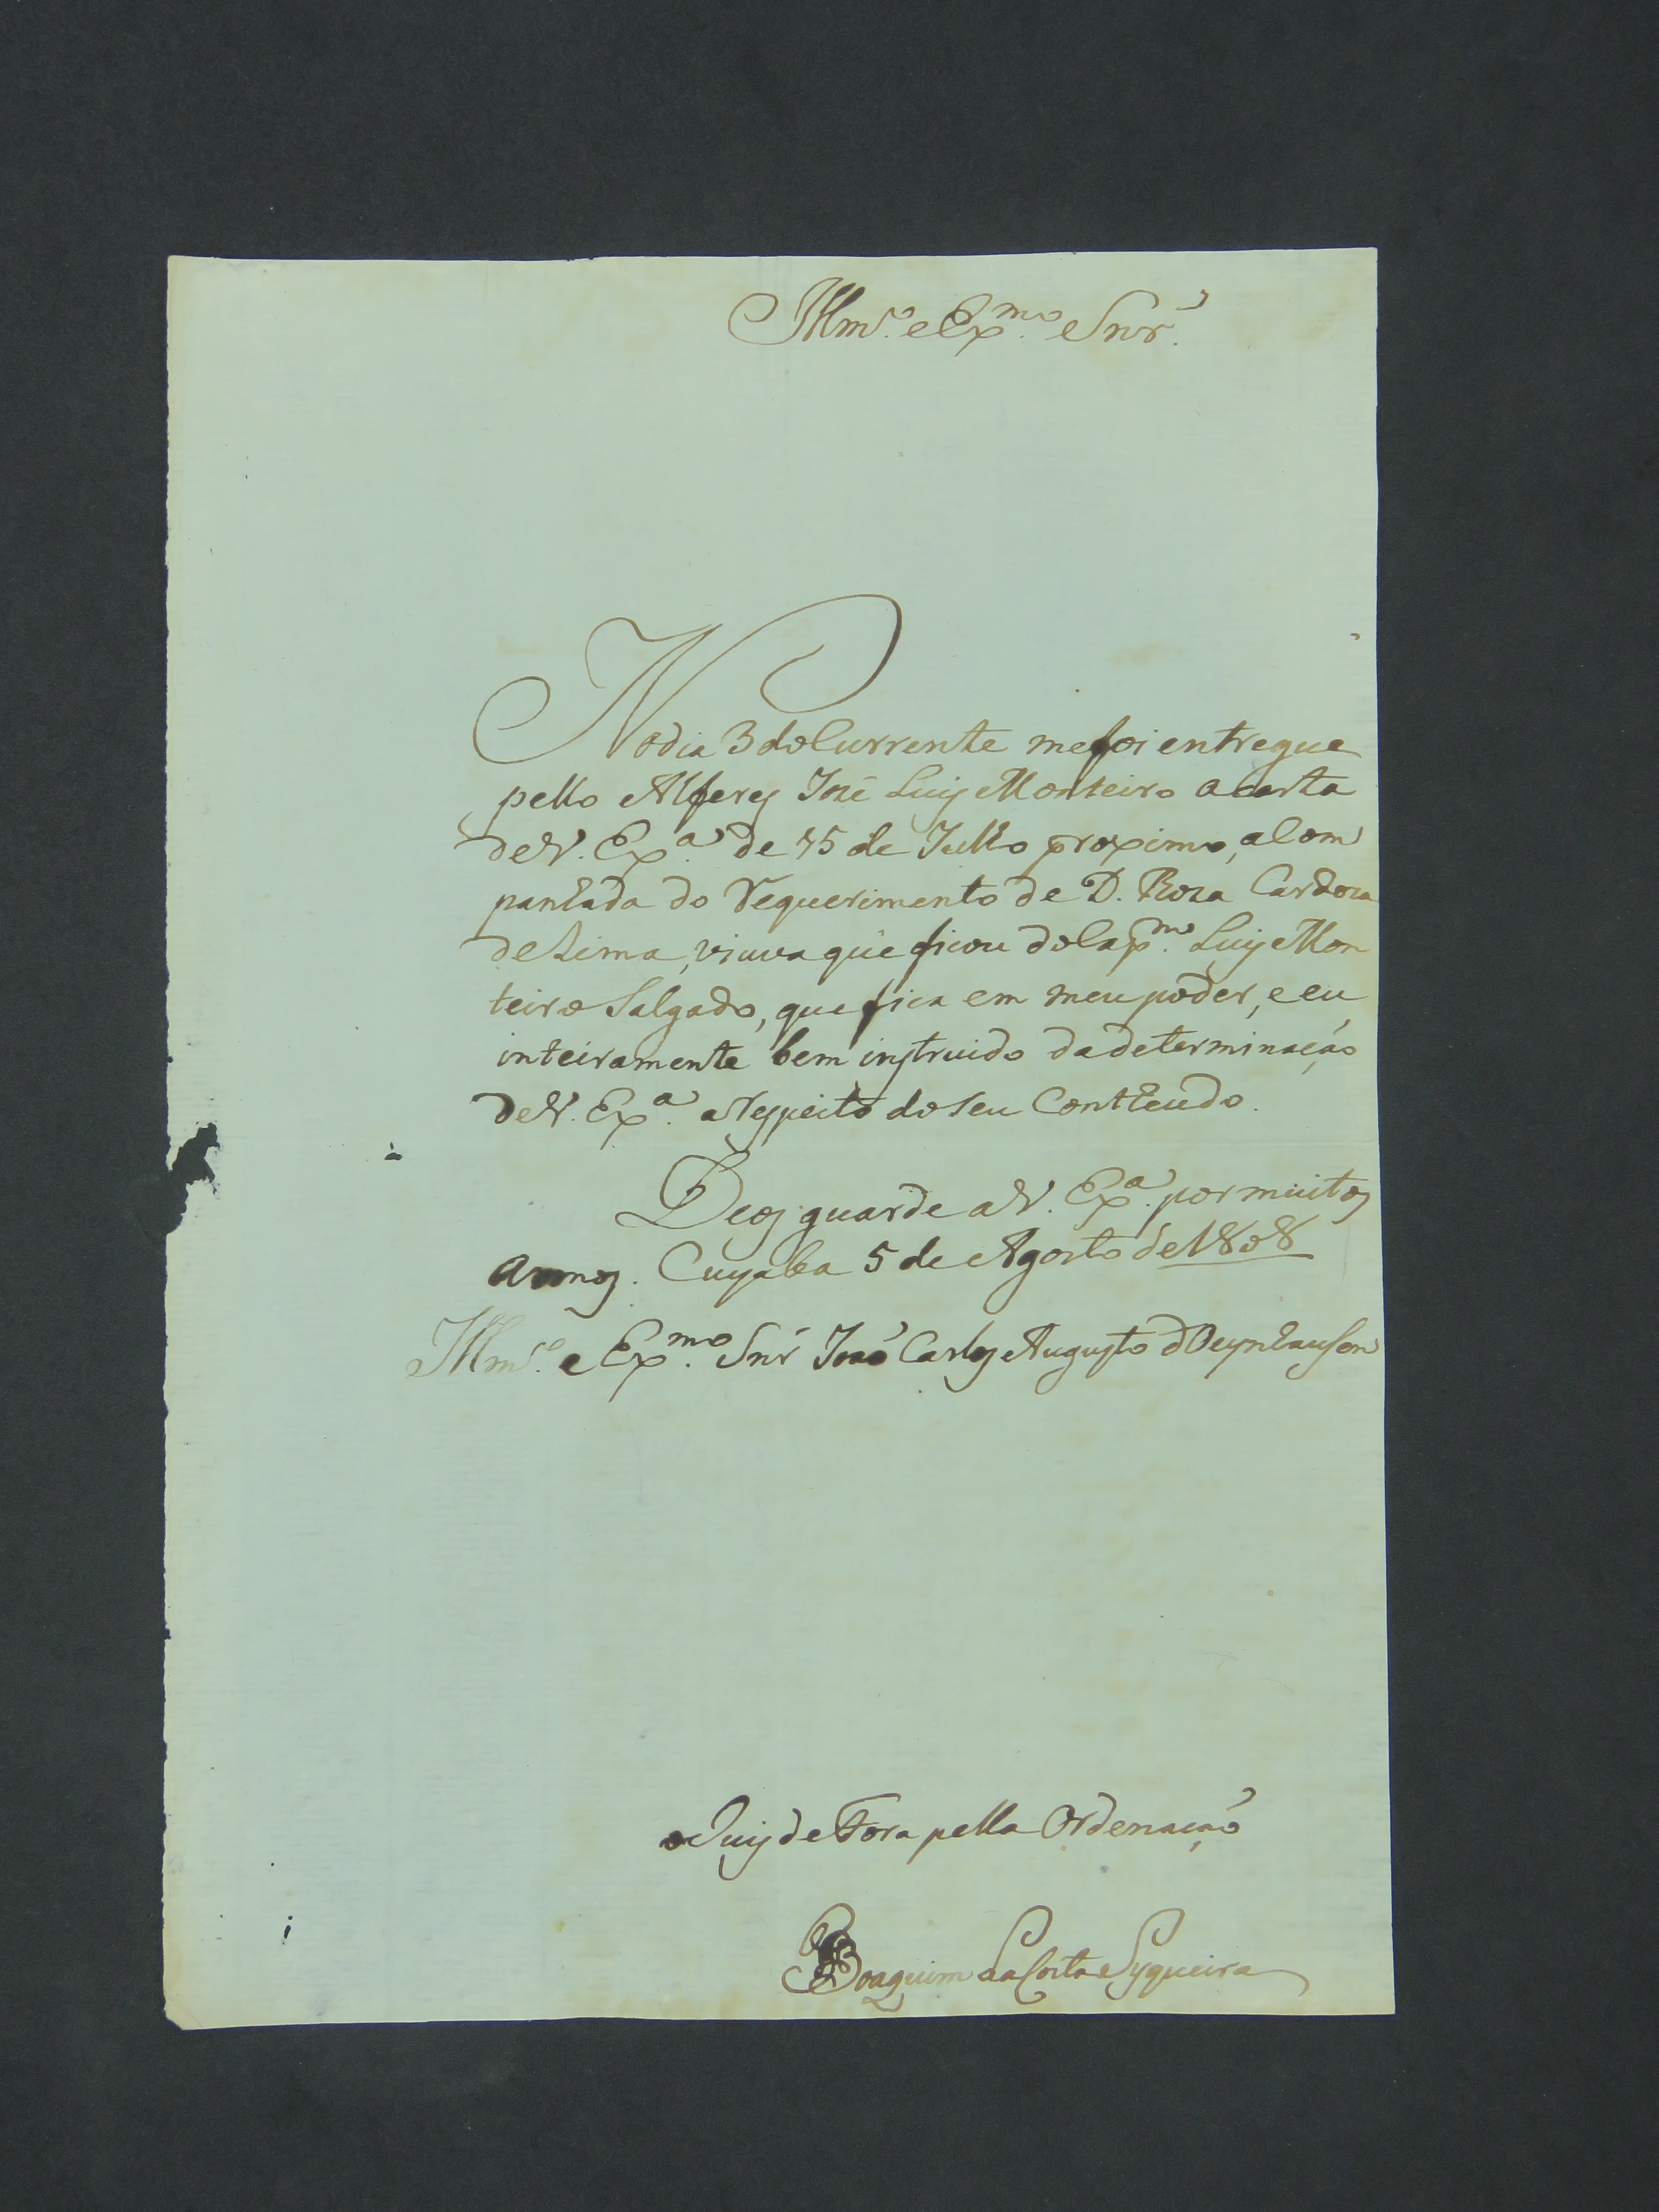 Illmº. e Exmº. Snr.
No dia 3 do Currente me foi entregue
pello Alferes José Luis Monteiro a carta
de V. Exª. de 15 de Julho proximo, acom
panhada do Requerimento de D. Roza Cardoza
de Lima, viuva que ficou do Capm. Luis Mon
teiro Salgado, que fica em meu poder, e eu
inteiramente bem instruido da determinação
de V. Exª. a Respeito do seu Contheudo.
Deos guarde a V. Exª. por muitos
annos. Cuyaba 5 de Agosto de 1808
Illmº. e Exmº. Snr João Carlos Augusto d'Oeynhausen
o Juis de Fora pella Ordenação
Joaquim da Costa Syqueira